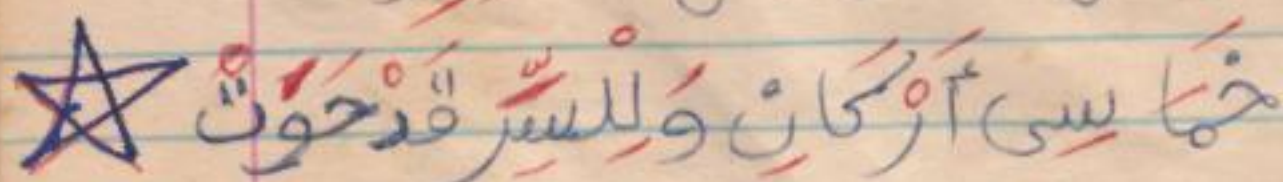 خُمَا سِى أَرْكَانٍ وَلِلْسِّرِ قَدْ حَوَتْ